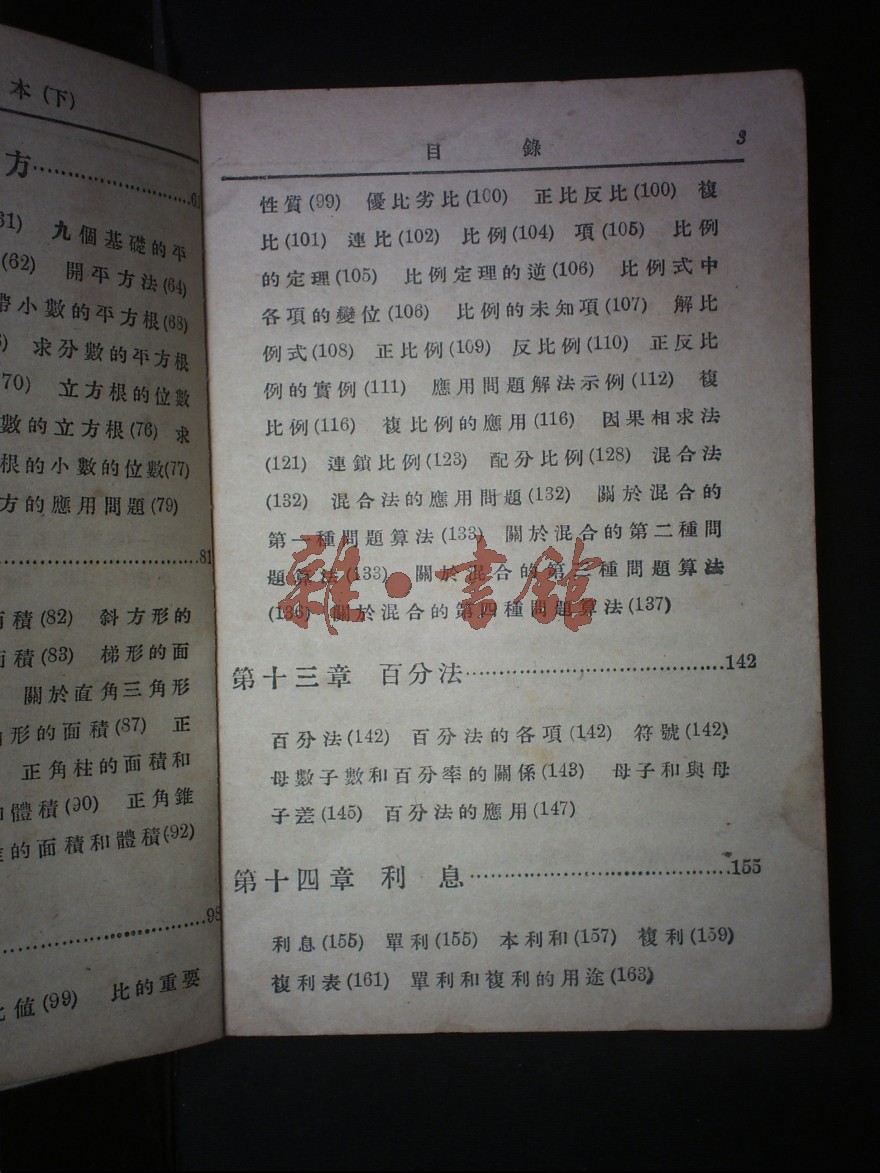 本(下)
方……………………61
61) 九個基礎的平
(62) 開平方法(64)
帶小數的平方根(68)
求分數的平方根
70) 立方根的位數
數的立方根(76) 求
根的小數的位數(77)
方的應用問題(79)
……………………81
面積(82) 斜方形的
面積(83) 梯形的面
關於直角三角形
形的面積(87) 正
正角柱的面積和
體積(90) 正角錐
的面積和體積(92)
……………………98
比値(99) 比的重要
目錄 3
性質(99) 優比劣比(100) 正比反比(100) 複
比(101) 連比(102) 比例(104) 項(105) 比例
的定理(105) 比例定理的逆(106) 比例式中
各項的變位(106) 比例的未知項(107) 解比
例式(108) 正比例(109) 反比例(110) 正反比
例的實例(111) 應用問題解法示例(112) 複
比例(116) 複比例的應用(116) 因果相求法
(121) 連鎖比例(123) 配分比例(128) 混合法
(132) 混合法的應用問題(132) 關於混合的
第一種問題算法(133) 關於混合的第二種問
題算法(133) 關於混合的第三種問題算法
(136) 關於混合的第四種問題算法(137)
雜·書館
第十三章 百分法……………………142
百分法(142) 百分法的各項(142) 符號(142)
母數子數和百分率的關係(143) 母子和與母
子差(145) 百分法的應用(147)
第十四章 利息……………………155
利息(155) 單利(155) 本利和(157) 複利(159)
複利表(161) 單利和複利的用途(163)